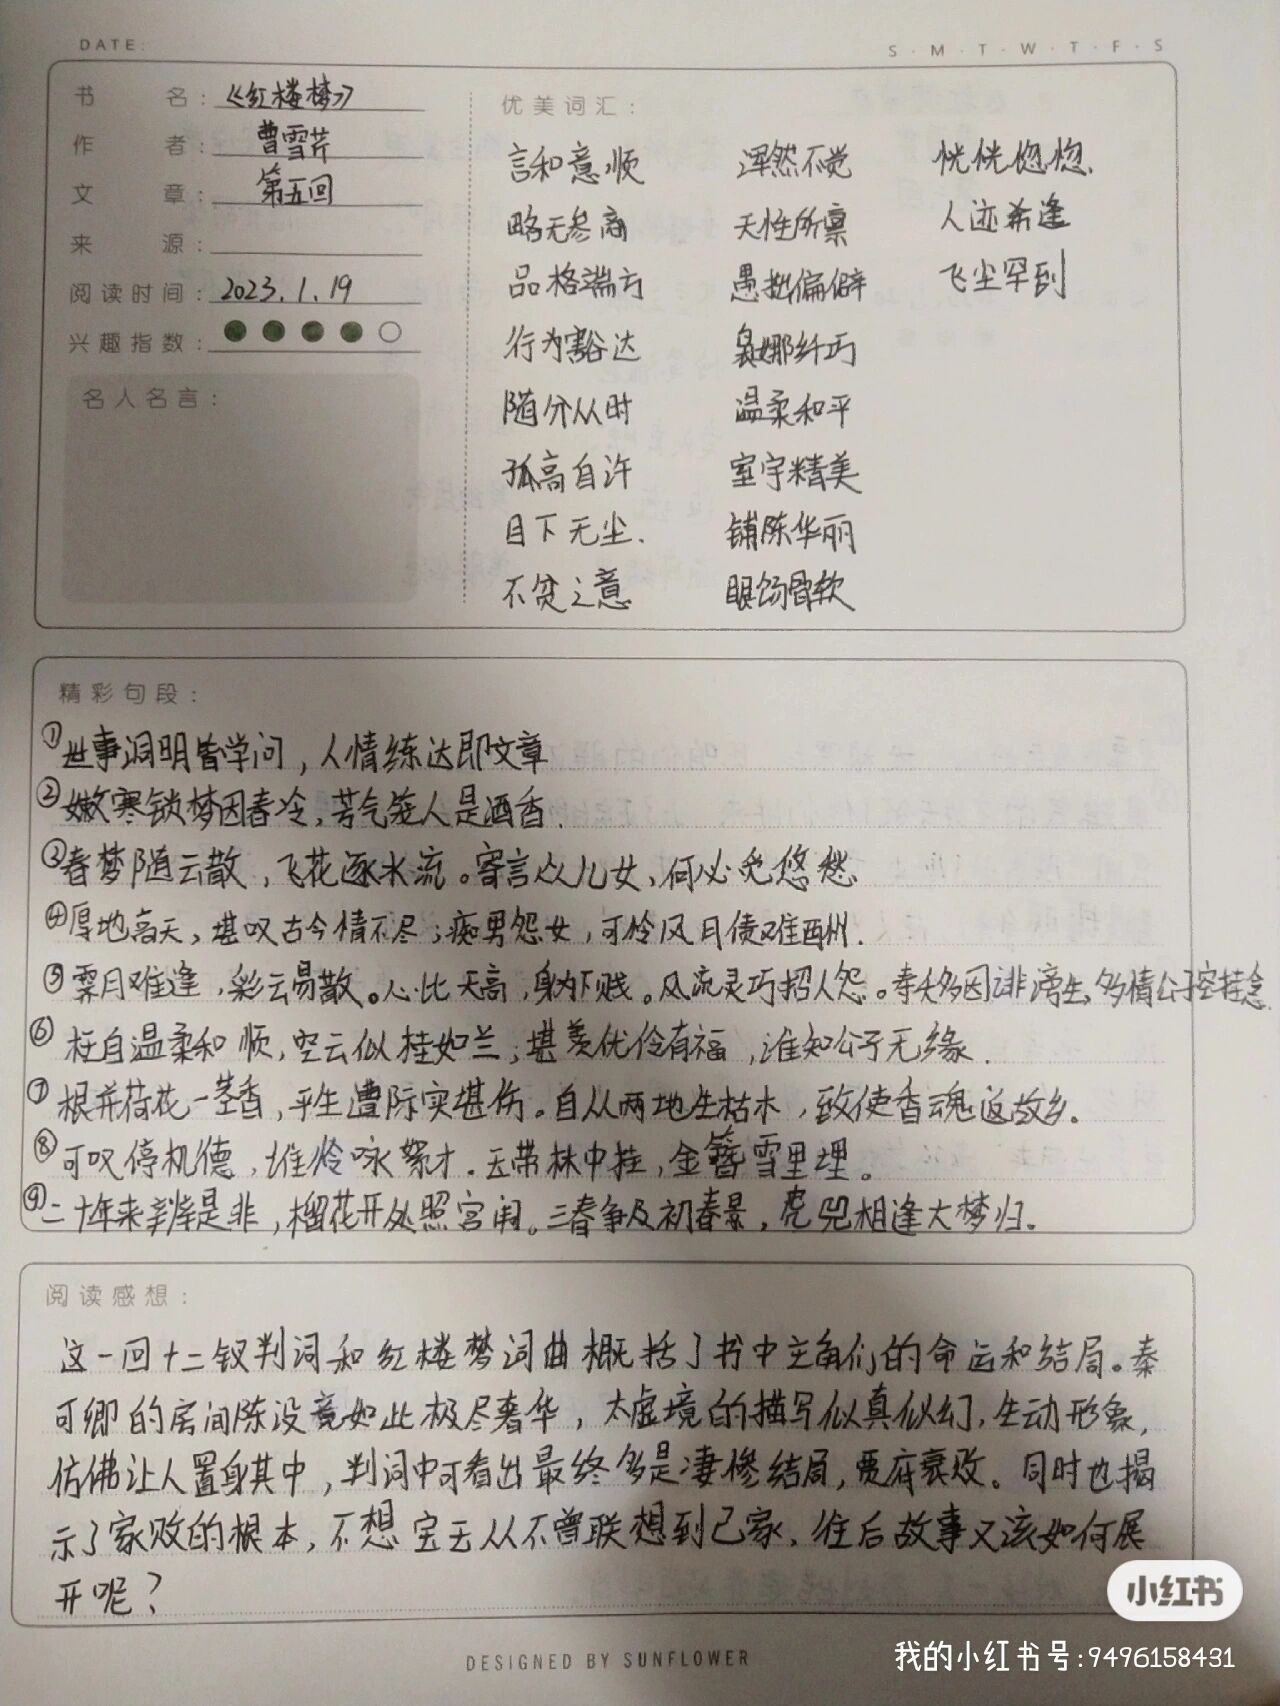 DATE:
S·M·T·W·T·F·S
书名:《红楼梦》
作者:曹雪芹
文章:第五回
来源:
阅读时间:2023.1.19
兴趣指数:
名人名言:
优美词汇:
言和意顺 浑然不觉 恍恍惚惚.
略无参商 天性所禀 人迹希逢
品格端方 愚拙偏僻 飞尘罕到
行为豁达 袅娜纤巧
随分从时 温柔和平
孤高自许 室宇精美
目下无尘. 铺陈华丽
不忿之意 眼饧骨软
精彩句段:
①世事洞明皆学问,人情练达即文章
②嫩寒锁梦因春冷,芳气笼人是酒香.
③春梦随云散,飞花逐水流。寄言众儿女,何必觅悠愁
④厚地高天,堪叹古今情不尽;痴男怨女,可怜风月债难酬.
⑤霁月难逢,彩云易散。心比天高,身为下贱。风流灵巧招人怨。寿夭多因诽谤生,多情公子空挂念.
⑥枉自温柔和顺,空云似桂如兰;堪羡优伶有福,谁知公子无缘.
⑦根并荷花一茎香,平生遭际实堪伤。自从两地生枯木,致使香魂返故乡。
⑧可叹停机德,堆怜咏絮才.玉带林中挂,金簪雪里埋。
⑨二十年来辨是非,榴花开处照宫闱。三春争及初春景,虎兕相逢大梦归。
阅读感想:
这一回十二钗判词和红楼梦词曲概括了书中主角们的命运和结局。秦
可卿的房间陈设竟如此极尽奢华,太虚境的描写似真似幻,生动形象,
仿佛让人置身其中,判词中可看出最终多是凄惨结局,贾府衰败。同时也揭
示了家败的根本,不想宝玉从不曾联想到己家,往后故事又该如何展
开呢?
DESIGNED BY SUNFLOWER
小红书
我的小红书号:9496158431